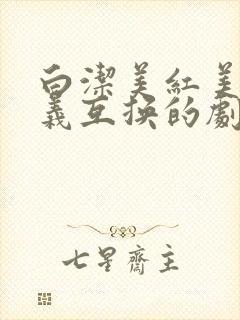 白潔美紅美
義互換的劇
七星齋主